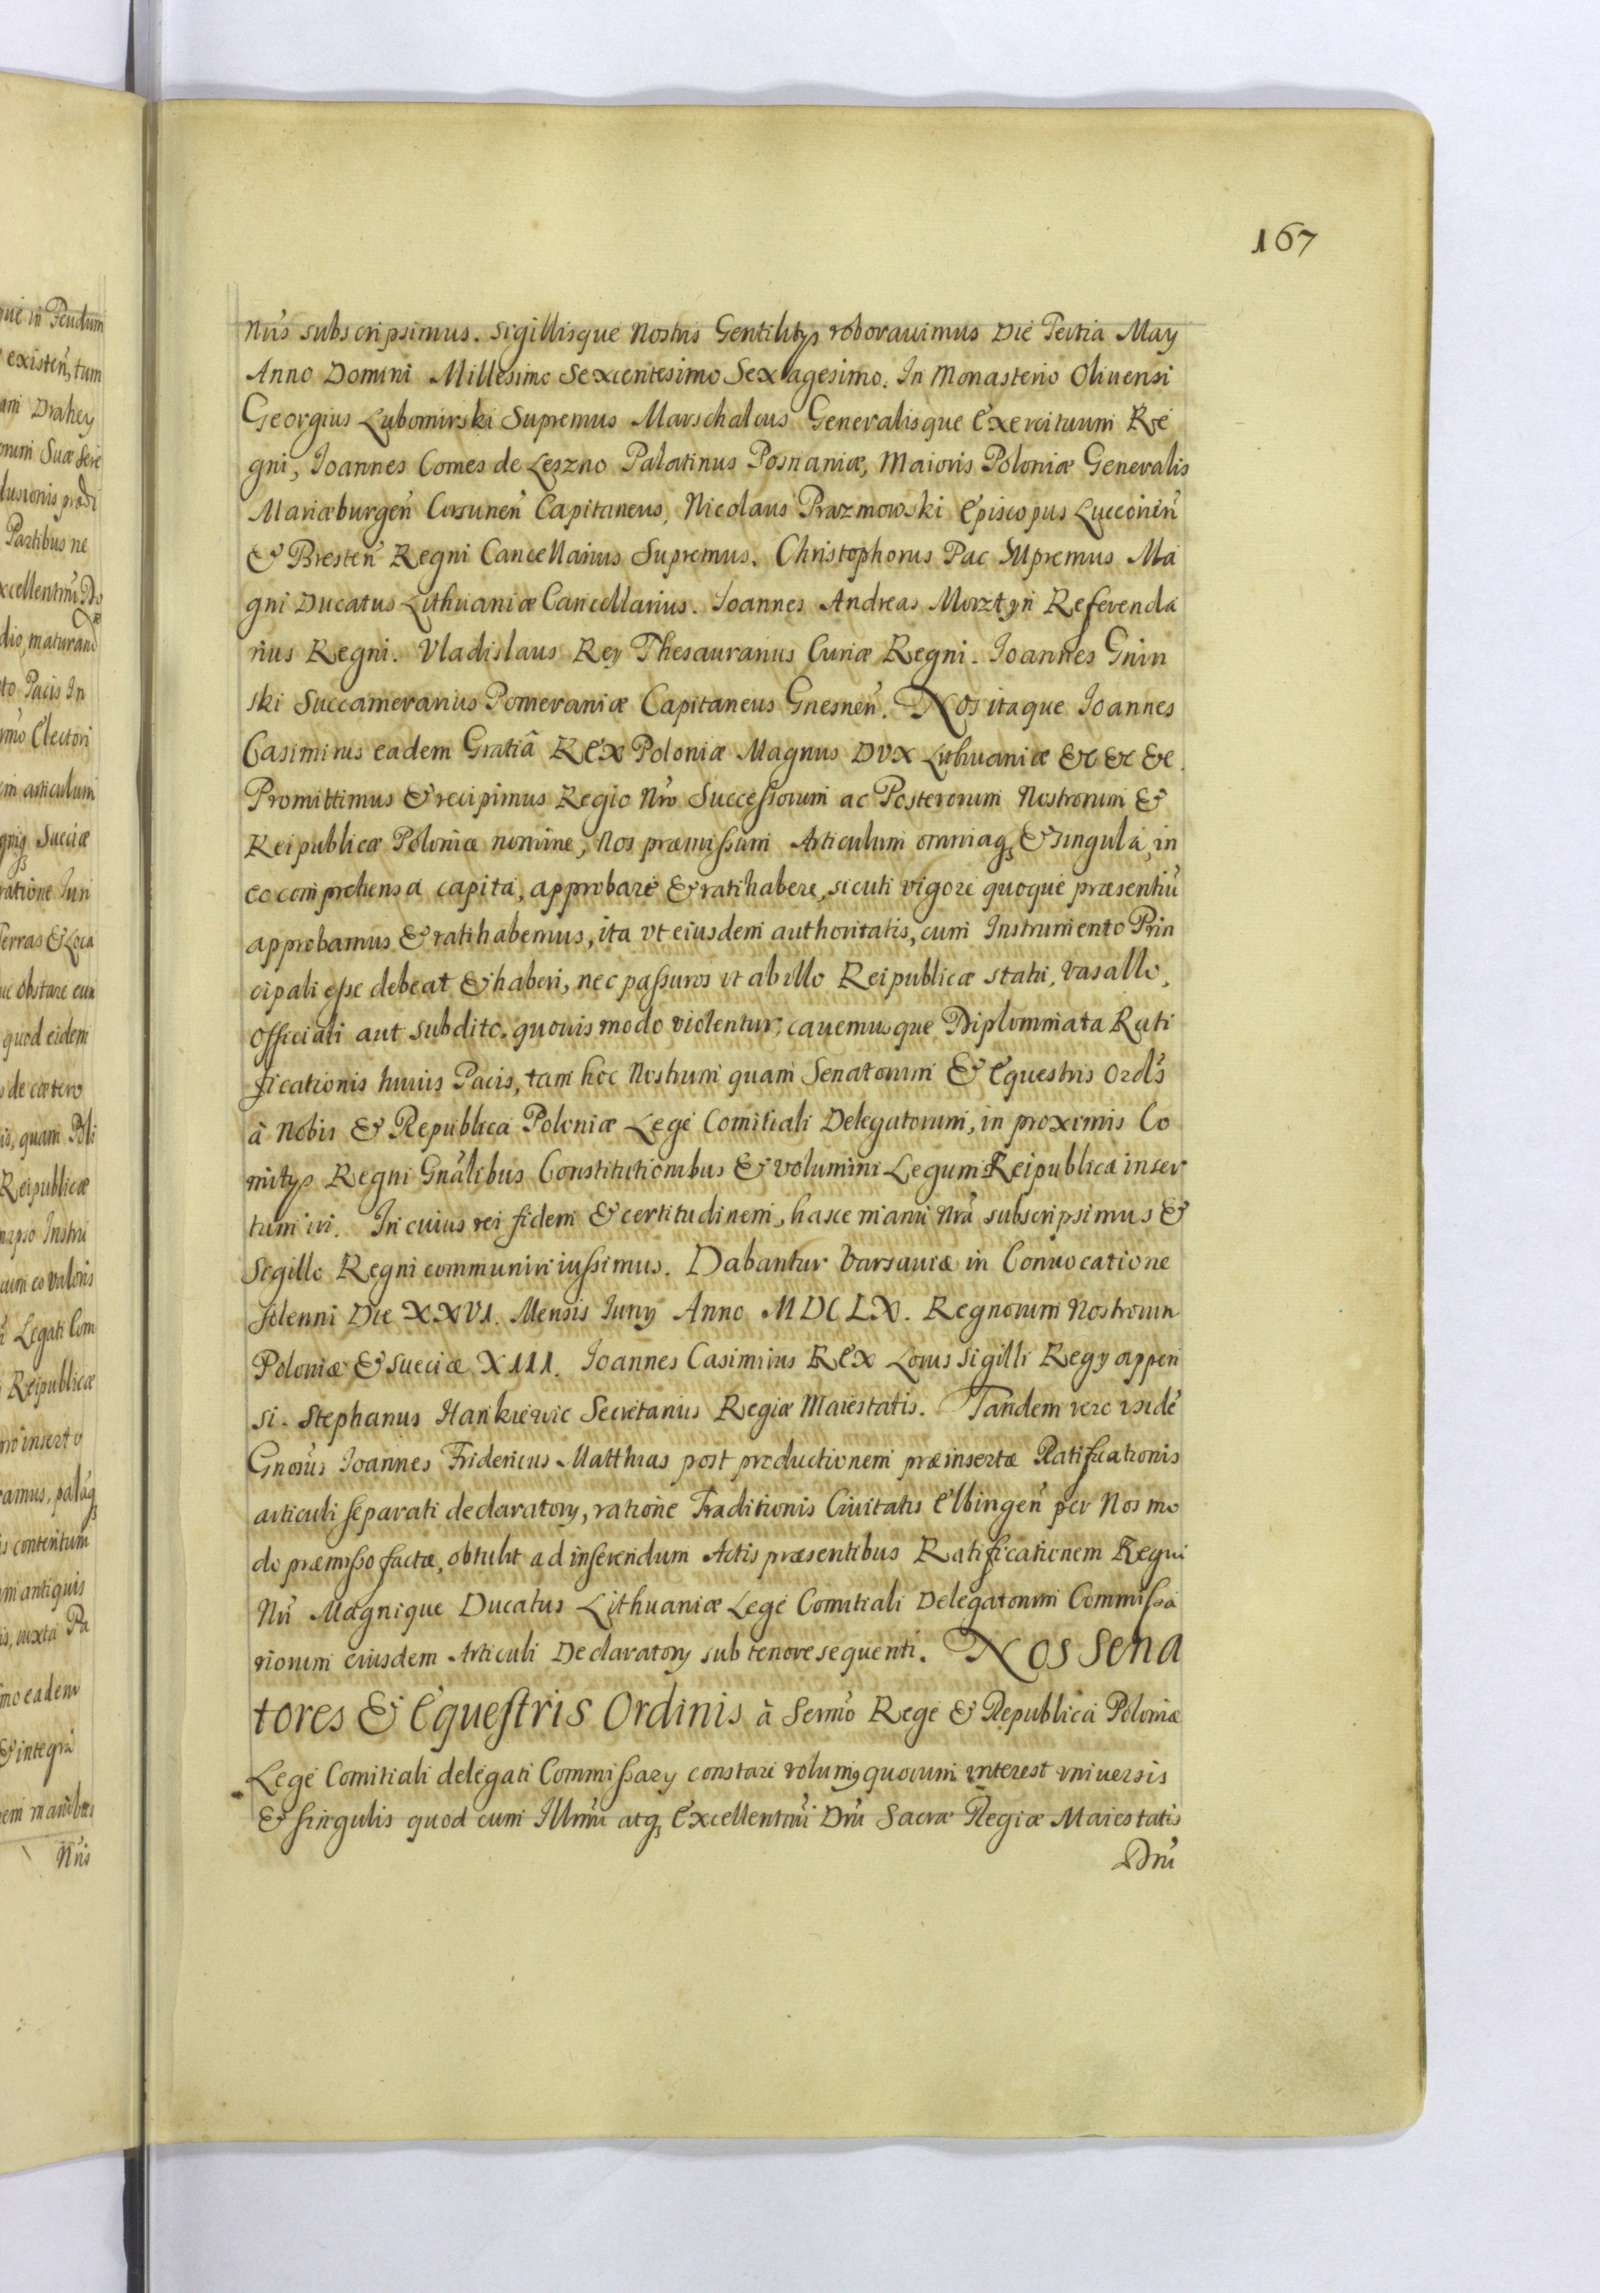 167
Nr̃is subscripsimus. Sigillisque Nostris Gentilitys roborauimus Die Tertia May
Anno Domini Millesimo Sexcentesimo Sexagesimo. In Monasterio Oliuensi
Georgius Lubomirski Supremus Marschalcus Generalisque Exercituum Re
gni, Joannes Comes de Leszno Palatinus Posnaniæ, Maioris Poloniæ Generalis
Mariæburgen̄ Corsunen̄ Capitaneus, Nicolaus Prazmowski Episcopus Lucconien̄
& Bresten̄ Regni Cancellarius Supremus. Christophorus Pac Supremus Ma
gni Ducatus Lithuaniæ Cancellarius. Joannes Andreas Morztyn Referenda
rius Regni. Vladislaus Rey Thesaurarius Curiæ Regni. Joannes Gnin
ski Succamerarius Pomeraniæ Capitaneus Gnesnen̄. Nos itaque Joannes
Casimirus eadem Gratiâ Rex Poloniæ Magnus Dux Lithuaniæ &c &c &c.
Promittimus & recipimus Regio Nr̃o Successorum ac Posterorum Nostrorum &
Reipublicæ Poloniæ nomine, Nos præmissum Articulum omniaq; & singula, in
eo comprehensa capita, approbare & ratihabere, sicuti vigore quoque præsentiū
approbamus & ratihabemus, ita vt eiusdem authoritatis, cum Instrumento Prin
cipali esse debeat & haberi, nec passuros vt ab vllo Reipublicæ statu, Vasallo,
Officiali aut subdito, quouis modo violentur, cauemusque Diplommata Rati
ficationis huius Pacis, tam hoc Nostrum quam Senatorum & Equestris Ord̃s
à Nobis & Republica Poloniæ Lege Comitiali Delegatorum, in proximis Co
mitys Regni Gnãlibus Constitutionibus & volumini Legum Reipublicæ inser
tum iri. In cuius rei fidem & certitudinem, hasce manu Nrã subscripsimus &
Sigillo Regni communiri iussimus. Dabantur Varsauiæ in Conuocatione
solenni Die XXVI. Mensis Iuny Anno MDCLX. Regnorum Nostrorum
Poloniæ & Sueciæ XIII. Joannes Casimirus Rex Locus Sigilli Regy appen
si. Stephanus Hankiewic Secretarius Regiæ Maiestatis. Tandem vero isdẽ
Gnosus Joannes Fridericus Matthias post productionem præinsertæ Ratificationis
articuli separati declaratory, ratione Traditionis Ciuitatis Elbingen̄ per Nos mo
do præmisso factæ, obtulit ad inserendum Actis præsentibus Ratificationem Regni
Nr̃i Magnique Ducatus Lithuaniæ Lege Comitiali Delegatorum Commissa
riorum eiusdem Articuli Declaratory sub tenore sequenti. Nos Sena
tores & Equestris Ordinis à Sermo Rege & Republica Poloniæ
Lege Comitiali delegati Commissary constare volumus quorum interest vniuersis
& singulis quod cum Illmũ atq; Excellentmũ Dnũ Sacræ Regiæ Maiestatis
Dnũ